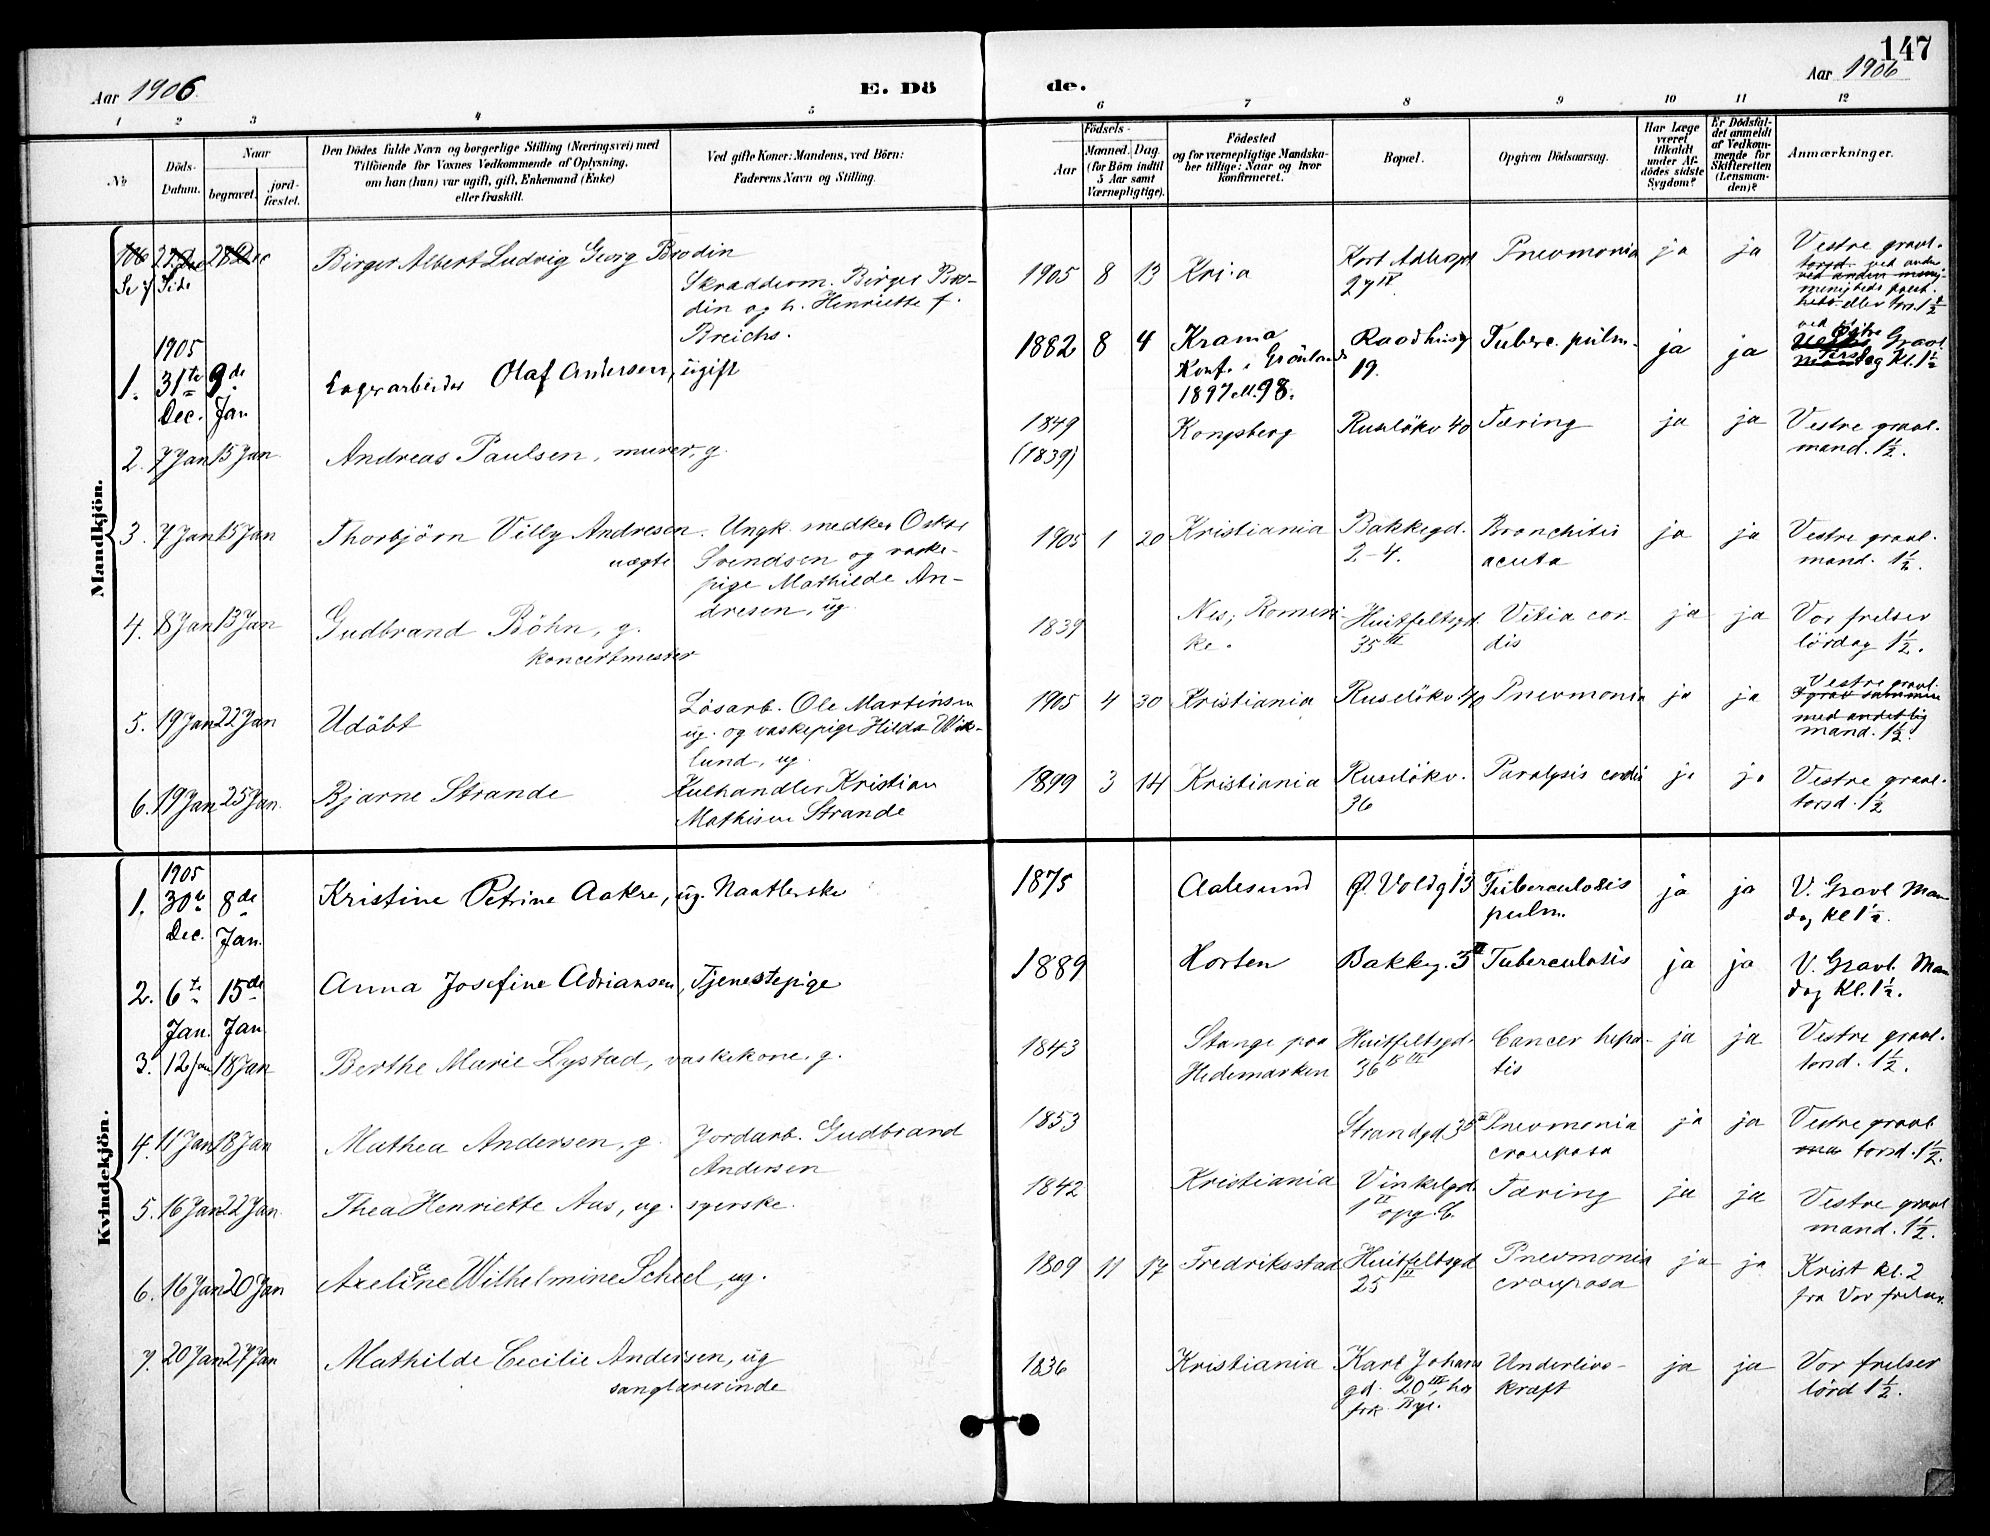 147
Aar 1906
E. Dö
de.
Aar 1906
1 2 3 4 5 6 7 8 9 10 11 12
No
Döds-
Datum.
Naar
begravet.
jord-
fæstet.
Den Dödes fulde Navn og borgerlige Stilling (Næringsvei) med
Tilföiende for Voxnes Vedkommende af Oplysning,
om han (hun) var ugift, gift, Enkemand (Enke)
eller fraskilt.
Ved gifte Koner: Mandens, ved Börn:
Faderens Navn og Stilling.
Födsels-
Aar
Maaned. Dag.
(for Börn indtil
5 Aar samt
Værnepligtige).
Födested
og for værnepligtige Mandska-
ber tillige: Naar og hvor
Konfirmeret.
Bopæl.
Opgiven Dödsaarsag.
Har Læge
været
tilkaldt
under Af-
dödes sidste
Sygdom?
Er Dödsfal-
det anmeldt
af Vedkom-
mende for
Skifteretten
(Lensman-
den)?
Anmærkninger.
Mandkjön.
Birger Albert Ludvig Georg Brodin
Skrædderm. Birger Bro-
din og h. Henriette f.
Breichs.
1905 8 13 Kr.ia
27 IV.
Pneumonia ja ja
Vestre gravl.
1905
1. 31te Dec. 9de Jan
Lagerarbeider Olaf Andersen, ugift
1882 8 4
Konf. i Grönland
1897 ell. 98.
Raadhusg
19.
Tuberc. pulm. ja ja
Gravl
Kl. 1½
2. 7 Jan 15 Jan
Andreas Paulsen, murer, g.
1849
(1839)
Kongsberg Ruselökv 40 Tæring ja ja
Vestre gravl.
mand. 1½.
3. 7 Jan 15 Jan
Thorbjörn Villy Andresen
uægte
Ungk. medker Oskar
Svendsen og vaske-
pige Mathilde An-
dresen, ug.
1905 1 20 Kristiania Bakkegd.
2-4.
Bronchitis
acuta
ja ja
Vestre gravl.
mand. 1½.
4. 8 Jan 13 Jan
Gudbrand Böhn, g.
koncertmester
1839
Nes, Romeri-
ke.
Huitfeltsgd.
35 III
Vitia cor-
dis
ja ja
Vor frelser
lördag 1½.
5. 19 Jan 22 Jan
Udöbt
Lösarb. Ole Martinsen
ug. og vaskepige Hilda Wik-
lund, ug.
1905 4 30 Kristiania Ruselökv. 40 Pneumonia ja ja
Vestre gravl.
mand. 1½.
6. 19 Jan 25 Jan.
Bjarne Strande
Kulhandler Kristian
Mathisen Strande
1899 3 14 Kristiania Ruselökv.
36
Paralysis cordis ja ja
Vestre gravl.
torsd. 1½
Kvindekjön.
1905
1. 30te Dec. 8de Jan.
Kristine Petrine Aakre, ug. Naatlerske
1875
Aalesund Ø. Voldg 13 Tuberculosis
pulm.
ja ja
V. Gravl Man
dag Kl 1½.
2. 6te Jan. 15de Jan.
Anna Josefine Adriansen, Tjenestepige
1889 Horten Bakkeg. 3 II Tuberculosis ja ja
V. Gravl. Man
dag Kl. 1½.
3. 12 Jan 18 Jan
Berthe Marie Lystad, vaskekone, g.
1843
Stange paa
Hedemarken
Huitfeltsgd.
36
Cancer hepa-
tis
ja ja
Vestre gravl.
torsd. 1½.
4. 11 Jan 18 Jan
Mathea Andersen, g.
Jordarb. Gudbrand
Andersen
1853 Strandgd. 35 Pneumonia
crouposa
ja ja
Vestre gravl
torsd. 1½.
5. 16 Jan 22 Jan.
Thea Henriette Aas, ug. syerske.
1842 Kristiania Vinkelgd.
1 opg. C.
Tæring ja ja
Vestre gravl
mand. 1½.
6. 16 Jan 20 Jan
Axeline Wilhelmine Scheel, ug.
1809 11 17 Fredriksstad Huitfeltsgd
25 II
Pneumonia
crouposa
ja ja
Krist kl. 2
fra Vor frelser.
7. 20 Jan 27 Jan
Mathilde Cecilie Andersen, ug
sanglærerinde
1836 Kristiania Karl Johans
gd. 20 III, hos
frk.
Underlivs-
kræft
ja ja
Vor frelser
lörd 1½.